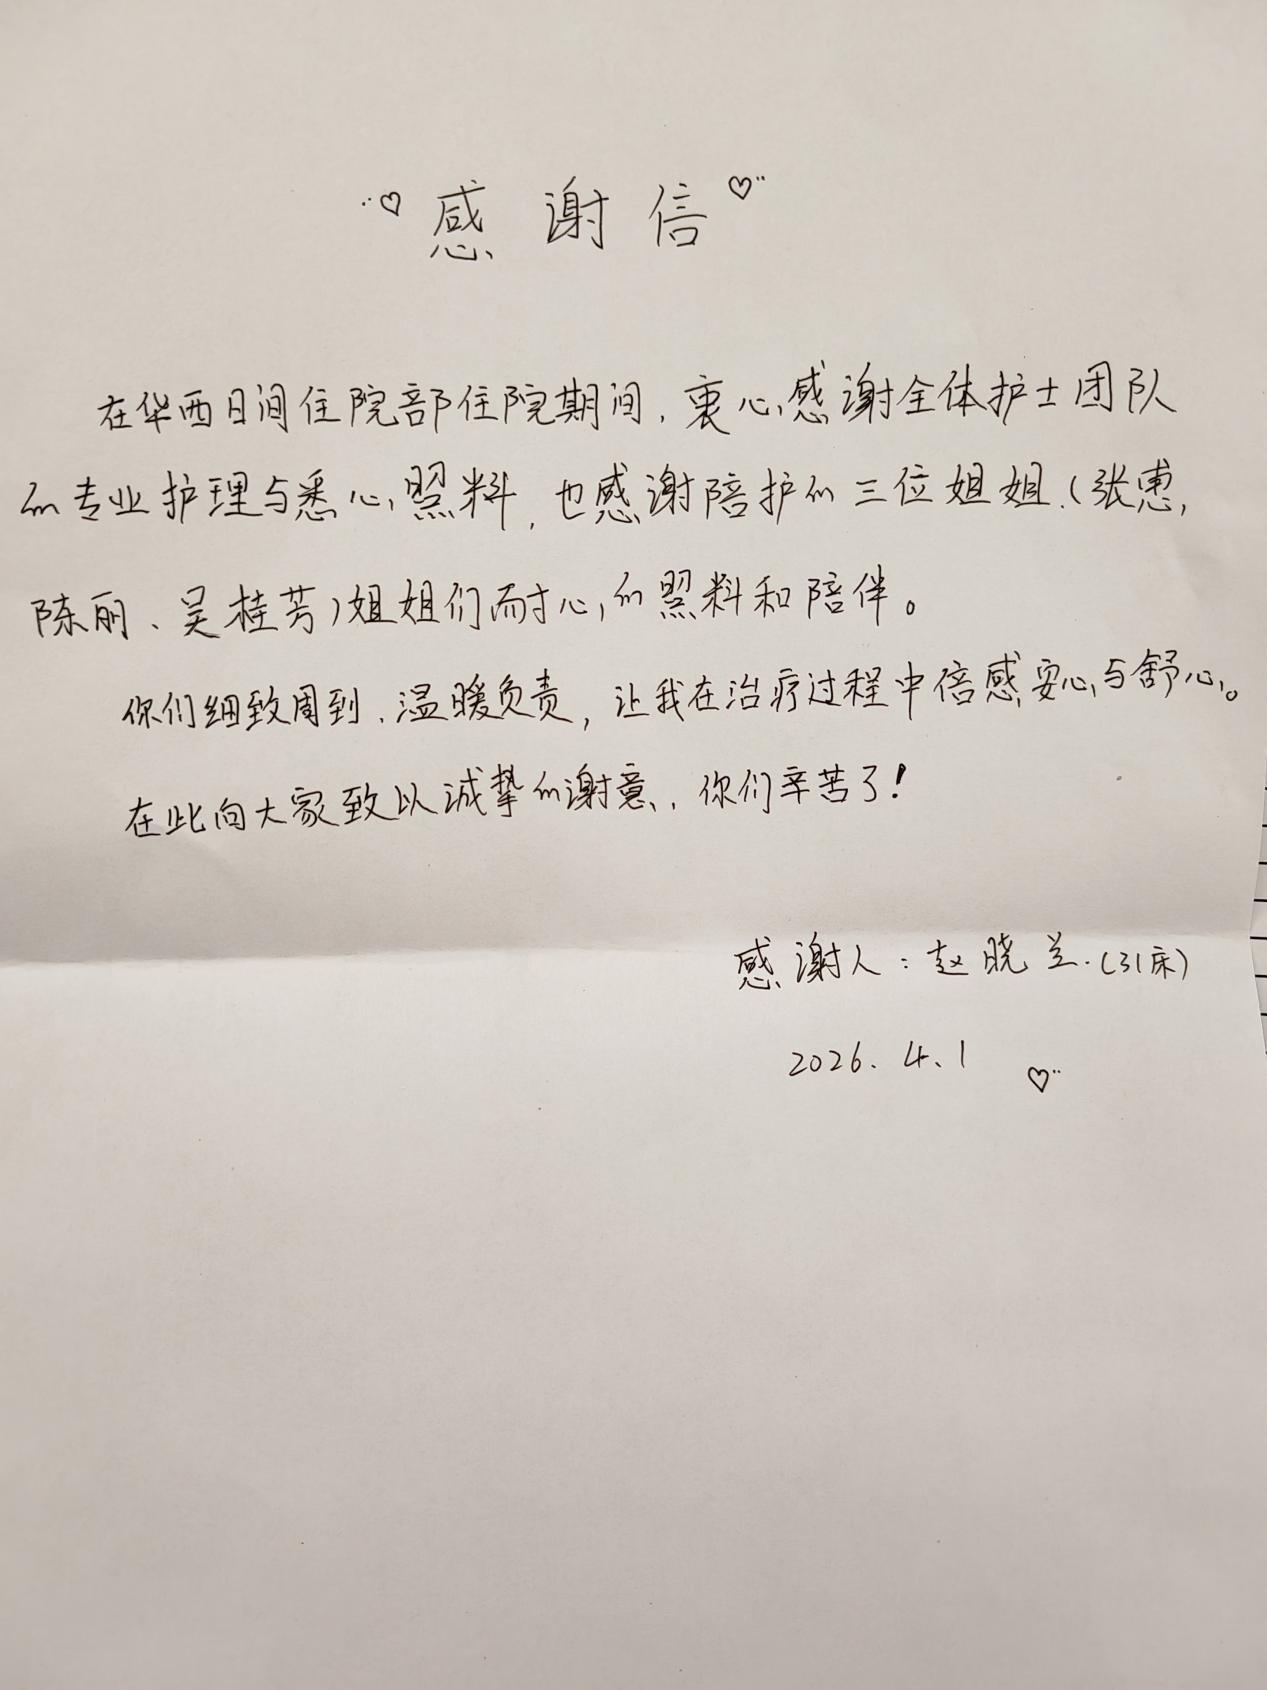 感谢信
在华西日间住院部住院期间,衷心感谢全体护士团队
的专业护理与悉心照料,也感谢陪护的三位姐姐.(张惠,
陈丽、吴桂芳)姐姐们耐心的照料和陪伴。
你们细致周到、温暖负责,让我在治疗过程中倍感安心与舒心。
在此向大家致以诚挚的谢意,你们辛苦了!
感谢人:赵晓兰.(31床)
2026.4.1